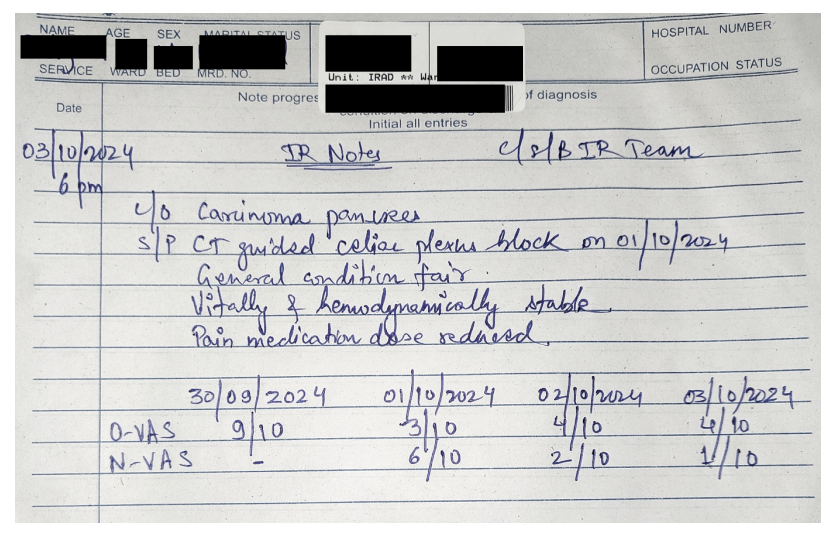 NAME AGE SEX MARITAL STATUS HOSPITAL NUMBER
SERVICE WARD BED MRD. NO. Unit: IRAD ** War OCCUPATION STATUS
Date Note progres of diagnosis
Initial all entries
03/10/2024 IR Notes C/S/B IR Team
6 pm
c/o Carcinoma pancreas
S/P CT guided celiac plexus block on 01/10/2024
General condition fair.
Vitally & hemodynamically stable.
Pain medication dose reduced.
30/09/2024 01/10/2024 02/10/2024 03/10/2024
O-VAS 9/10 3/10 4/10 4/10
N-VAS - 6/10 2/10 1/10